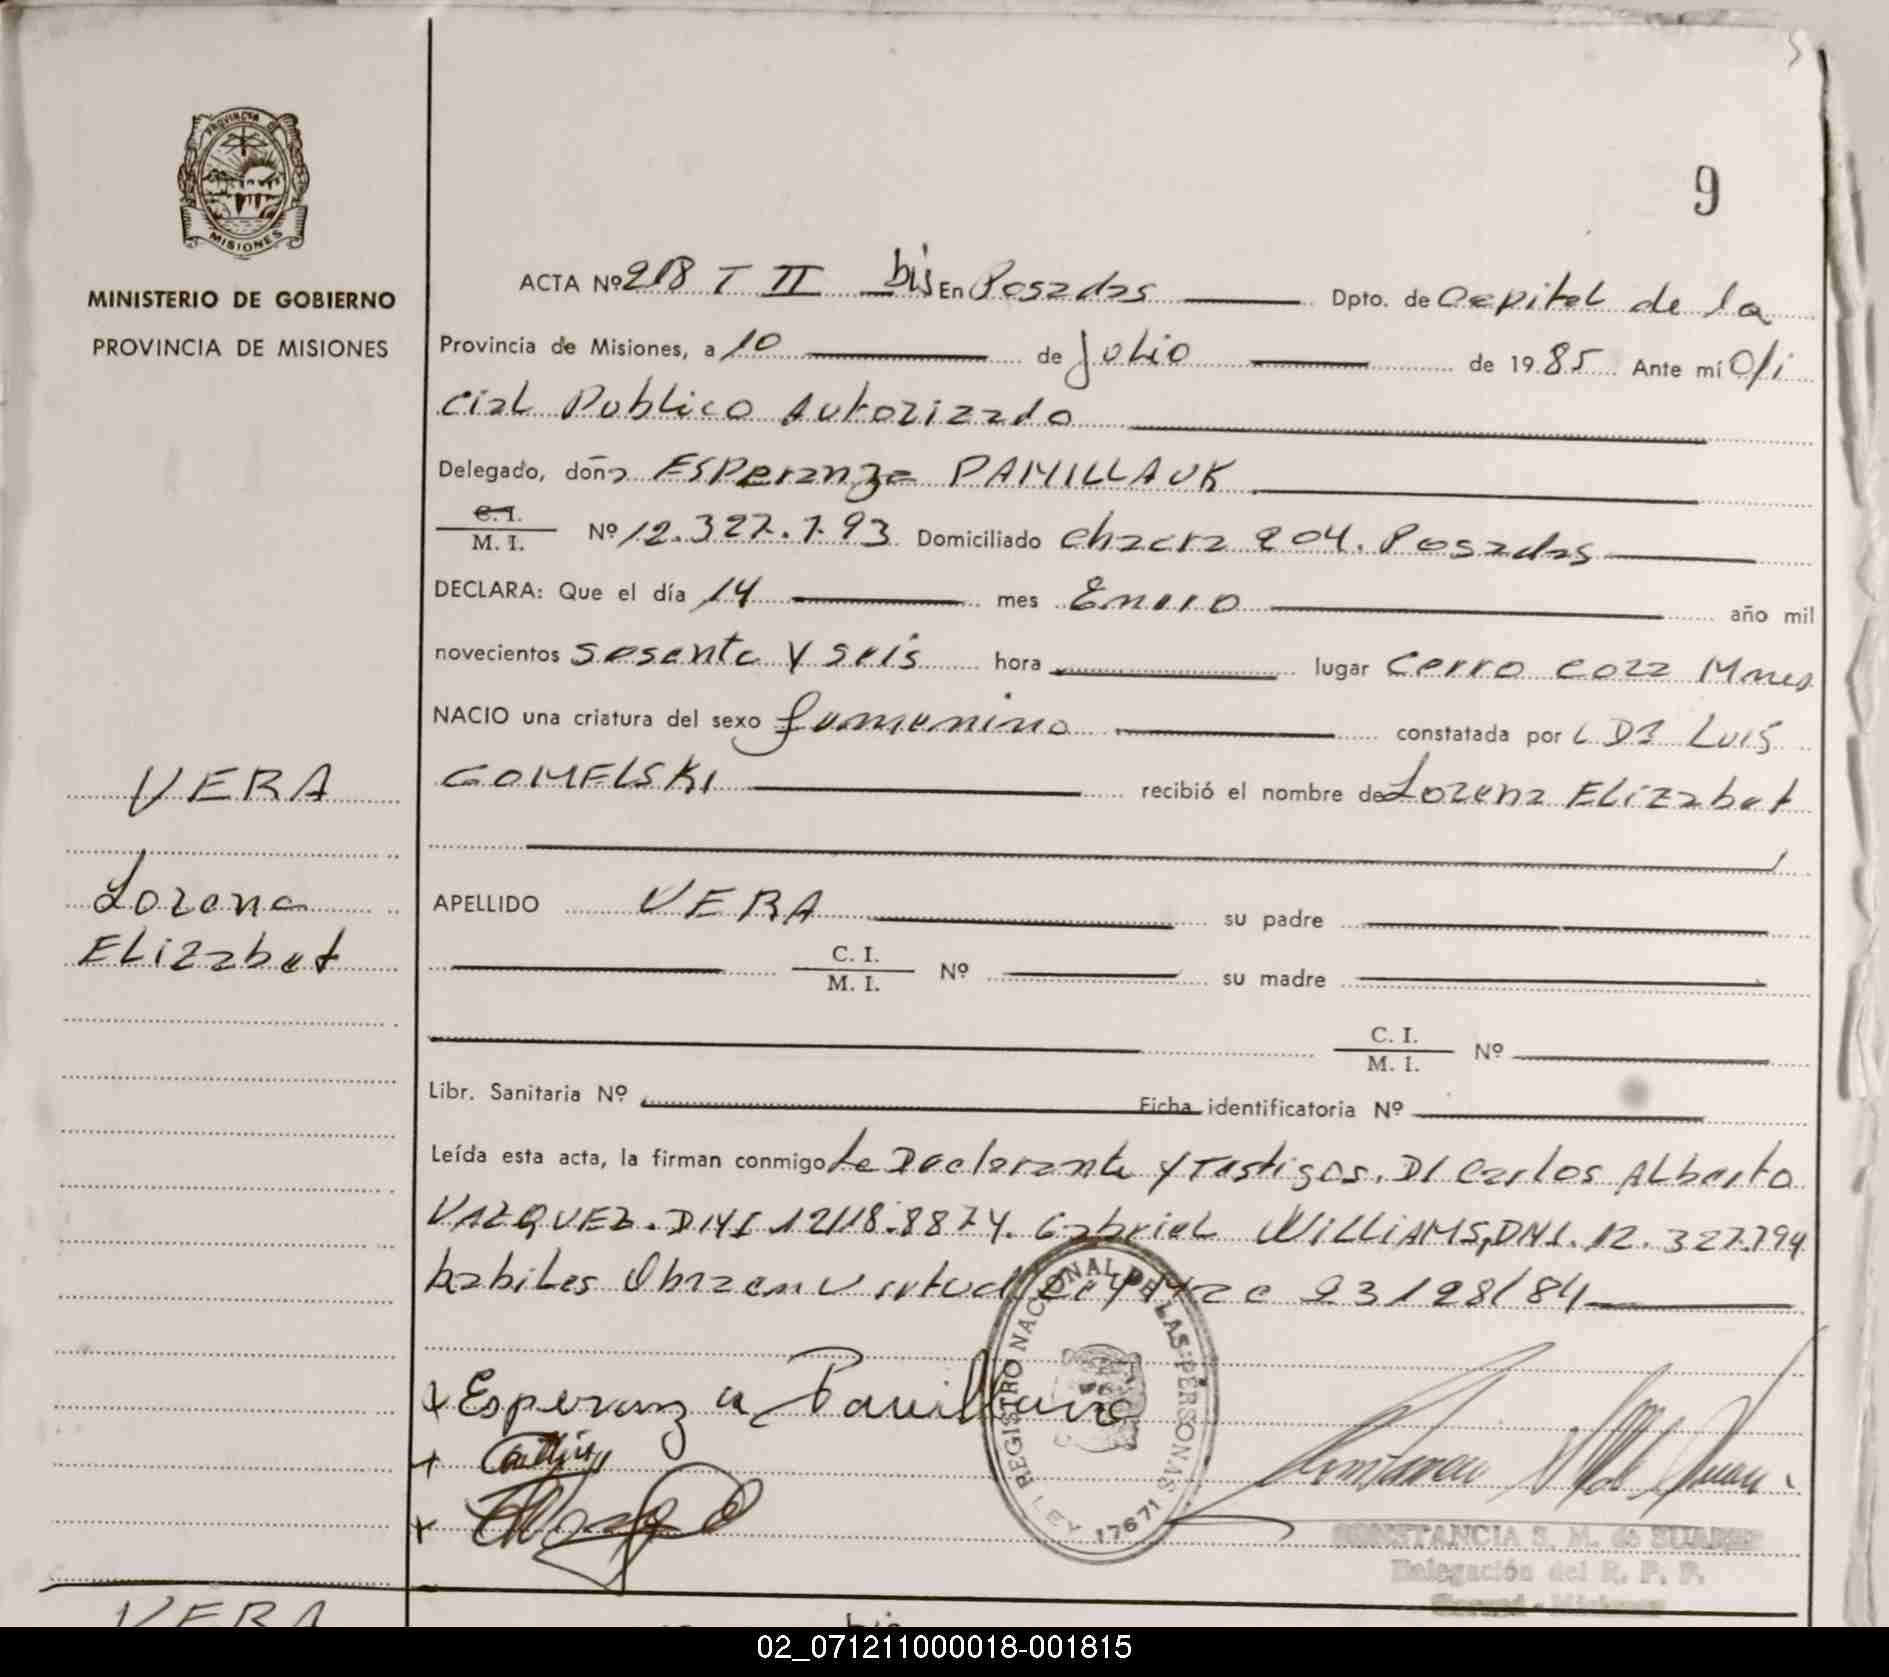 PROVINCIA DE
MISIONES
MINISTERIO DE GOBIERNO
PROVINCIA DE MISIONES
9
ACTA Nº 218 T II bis En Posadas Dpto. de Capital de la
Provincia de Misiones, a 10 de Julio de 1985 Ante mí Ofi
cial Publico Autorizado
Delegado, doña Esperanza PAMILLAUK
C. I.
M. I. Nº 12.327.793 Domiciliado Chacra 204. Posadas
DECLARA: Que el día 14 mes Enero año mil
novecientos sesenta y seis hora lugar Cerro Cora Mnes
NACIO una criatura del sexo femenino constatada por Luis
GOMELSKI recibió el nombre de Lorena Elizabet
APELLIDO VERA su padre
C. I.
M. I. Nº su madre
C. I.
M. I. Nº
Libr. Sanitaria Nº Ficha identificatoria Nº
Leída esta acta, la firman conmigo La Declarante y Testigos. Carlos Alberto
VAZQUEZ. Gabriel WILLIAMS, DNI. 12.327.794
habiles Obra en virtud
VERA
Lorena
Elizabet
Esperanza
REGISTRO NACIONAL DE LAS PERSONAS
LEY 17671
CONSTANCIA S. M. de SUAREZ
Delegación del R. P. P.
VERA
bis
02_071211000018-001815